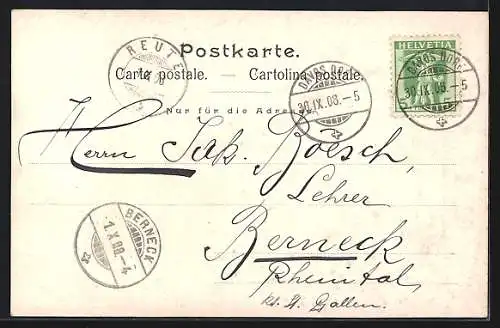 Postkarte.
Carte postale. — Cartolina postale.
Nur für die Adresse.
HELVETIA
5
DAVOS DORF
30.IX.08.-5
DAVOS DORF
30.IX.08.-5
REUTE
Herrn Jak. Boesch,
Lehrer
Berneck
Rheintal,
kt. St. Gallen.
BERNECK
1.X.08.-4